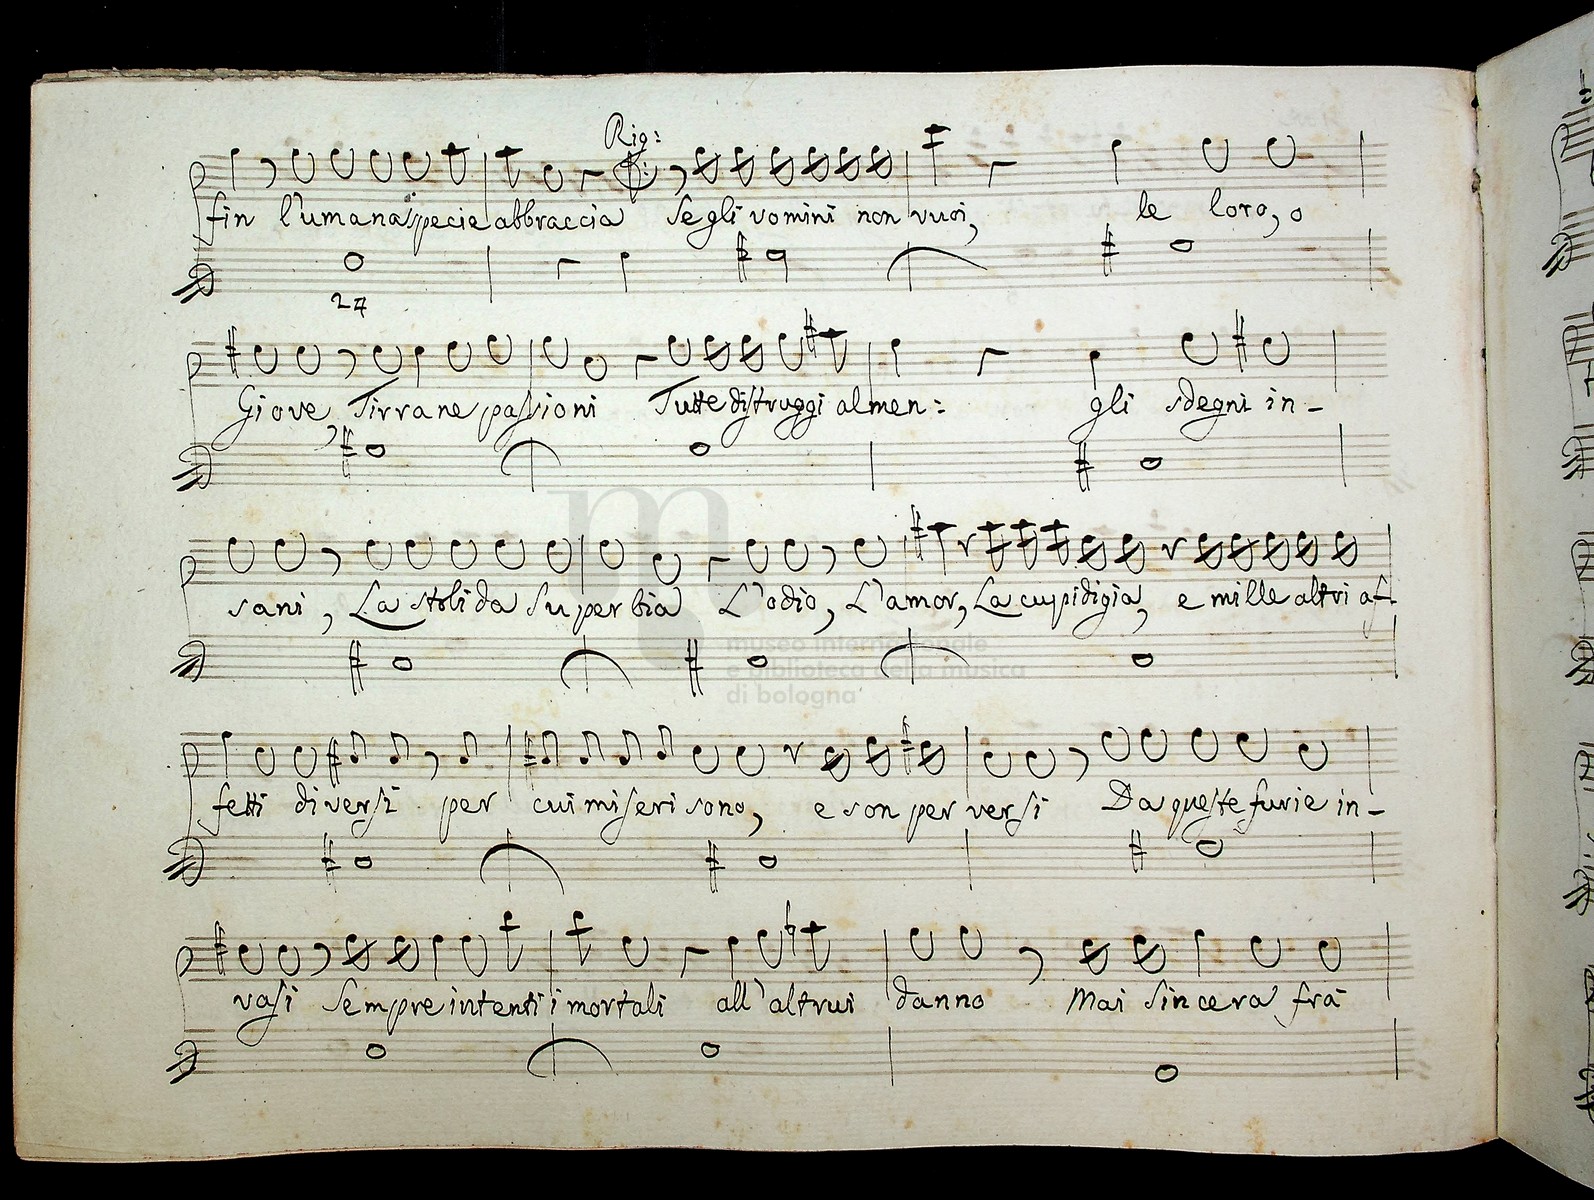 Rig:
fin l'umana specie abbraccia Se gli vomini non vuoi, le loro, o
27
Giove, Tirrane passioni Tutte distruggi almen: gli sdegni in-
sani, La stolida Superbia L'odio, L'amor, La cupidigia, e mille altri af-
museo internazionale
e biblioteca della musica
di bologna
fetti diversi per cui miseri sono, e son perversi Da queste furie in-
vasi Sempre intenti i mortali all'altrui danno Mai Sincera frà